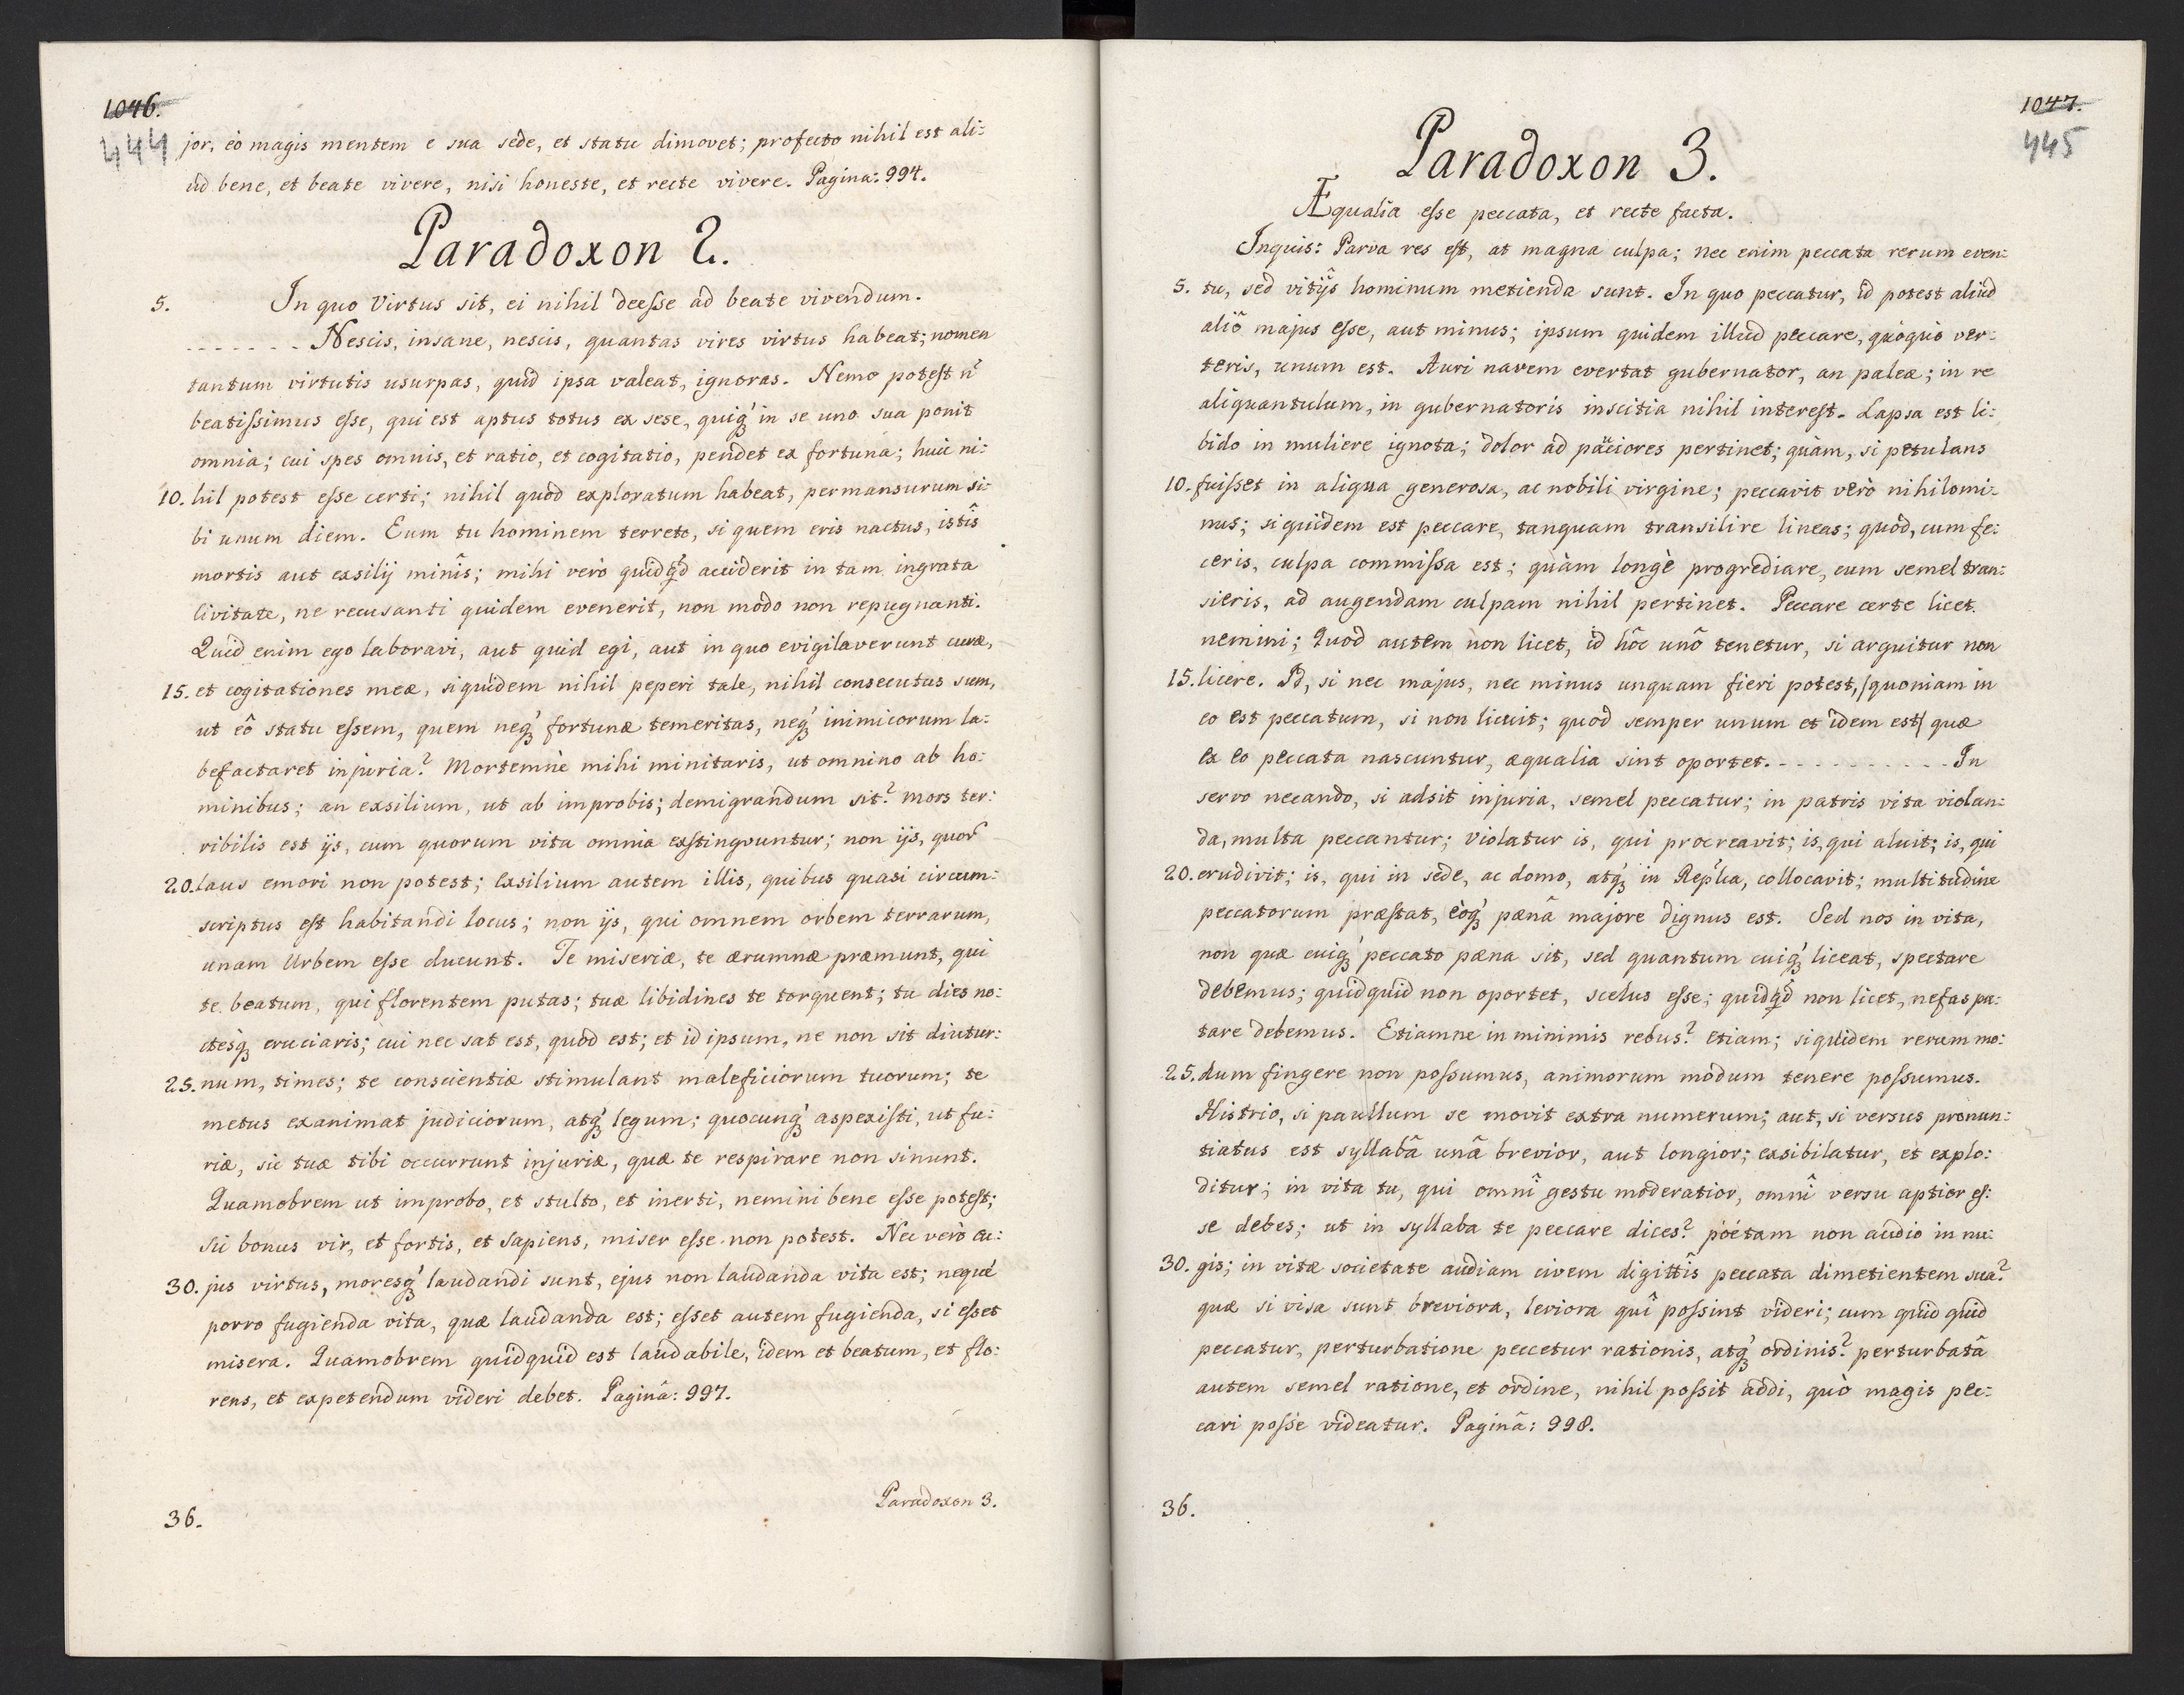 1046.
444
jor, eò magis mentem e sua sede, et statu dimovet; profecto nihil est ali:
ud bene, et beate vivere, nisi honeste, et recte vivere. Pagina: 994.
Paradoxon 2.
5. In quo Virtus sit, ei nihil deesse ad beate vivendum.
- - - - - - - Nescis, insane, nescis, quantas vires virtus habeat; nomen
tantum virtutis usurpas, quid ipsa valeat, ignoras. Nemo potest ñ
beatissimus esse, qui est aptus totus ex sese, quiq́ in se uno sua ponit
omnia; cui spes omnis, et ratio, et cogitatio, pendet ex fortuna; huic ni:
10. hil potest esse certi; nihil quod exploratum habeat, permansurum si:
bi unum diem. Eum tu hominem terreto, si quem eris nactus, istîs
mortis aut exsilij minîs; mihi verò quidq́d acciderit in tam ingrata
Civitate, ne recusanti quidem evenerit, non modo non repugnanti.
Quid enim ego laboravi, aut quid egi, aut in quo evigilaverunt curæ,
15. et cogitationes meæ, siquidem nihil peperi tale, nihil consecutus sum,
ut eô statu essem, quem neq́ fortunæ temeritas, neq́ inimicorum la:
befactaret injuria? Mortemnè mihi minitaris, ut omnino ab ho:
minibus; an exsilium, ut ab improbis; demigrandum sit? mors ter:
ribilis est ijs, cum quorum vita omnia exstingvuntur; non ijs, quor̃
20. laus emori non potest; exsilium autem illis, quibus quasi circum:
scriptus est habitandi locus; non ijs, qui omnem orbem terrarum,
unam Urbem esse ducunt. Te miseriæ, te ærumnæ præmunt, qui
te beatum, qui florentem putas; tuæ libidines te torquent; tu dies no:
ctesq́ cruciaris; cui nec sat est, quod est; et id ipsum, ne non sit diutur:
25. num, times; te conscientiæ stimulant maleficiorum tuorum; te
metus exanimat judiciorum, atq́ legum; quocunq́ aspexisti, ut fu:
riæ, sic tuæ tibi occurrunt injuriæ, quæ te respirare non sinunt.
Quamobrem ut improbo, et stulto, et inerti, nemini bene esse potest;
sic bonus vir, et fortis, et sapiens, miser esse non potest. Nec verò cu:
30. jus virtus, moresq́ laudandi sunt, ejus non laudanda vita est; neque
porro fugienda vita, quæ laudanda est; esset autem fugienda, si esset
misera. Quamobrem quidquid est laudabile, idem et beatum, et flo:
rens, et expetendum videri debet. Paginâ: 997.
Paradoxon 3.
36.
1047.
445
Paradoxon 3.
Æqualia esse peccata, et recte facta.
Inquis: Parva res est, at magna culpa; nec enim peccata rerum even:
5. tu, sed vitijs hominum metienda sunt. In quo peccatur, id potest aliud
aliô majus esse, aut minus; ipsum quidem illud peccare, quoquò ver:
teris, unum est. Auri navem evertat gubernator, an paleæ; in re
aliquantulum, in gubernatoris inscitia nihil interest. Lapsa est li:
bido in muliere ignota; dolor ad pauciores pertinet; quàm, si petulans
10. fuisset in aliqua generosa, ac nobili virgine; peccavit verò nihilomi:
nus; siquidem est peccare, tanquam transilire lineas; quod, cum fe:
ceris, culpa commissa est; quàm longè progrediare, cum semel tran:
sieris, ad augendam culpam nihil pertinet. Peccare certe licet
nemini; Quod autem non licet, id hôc unô tenetur, si arguitur non
15. licere. Id, si nec majus, nec minus unquam fieri potest, /quoniam in
eo est peccatum, si non licuit; quod semper unum et idem est/ quæ
ex eo peccata nascuntur, æqualia sint oportet. - - - - - - - - - - In
servo necando, si adsit injuria, semel peccatur; in patris vita violan:
da, multa peccantur; Violatur is, qui procreavit; is, qui aluit; is, qui
20. erudivit; is, qui in sede, ac domo, atq́ in Rep̃lca, collocavit; multitudine
peccatorum præstat, eòq́ pænâ majore dignus est. Sed nos in vita,
non quæ cuiq́ peccato pæna sit, sed quantum cuiq́ liceat, spectare
debemus; quidquid non oportet, scelus esse; quidq́d non licet, nefas pu:
tare debemus. Etiamne in minimis rebus? etiam; siquidem rerum mo:
25. dum fingere non possumus, animorum modum tenere possumus.
Histrio, si paullum se movit extra numerum; aut, si versus pronun:
tiatus est syllabâ unâ brevior, aut longior; exsibilatur, et explo:
ditur; in vita tu, qui omnî gestu moderatior, omnî versu aptior es:
se debes; ut in syllaba te peccare dices? poétam non audio in nu:
30. gis; in vitæ societate audiam civem digittîs peccata dimetientem sua?
quæ si visa sunt breviora, leviora quî possint videri; cum quid quid
peccatur, perturbatione peccetur rationis, atq́ ordinis? perturbatâ
autem semel ratione, et ordine, nihil possit addi, quò magis pec:
cari posse videatur. Paginâ: 998.
36.